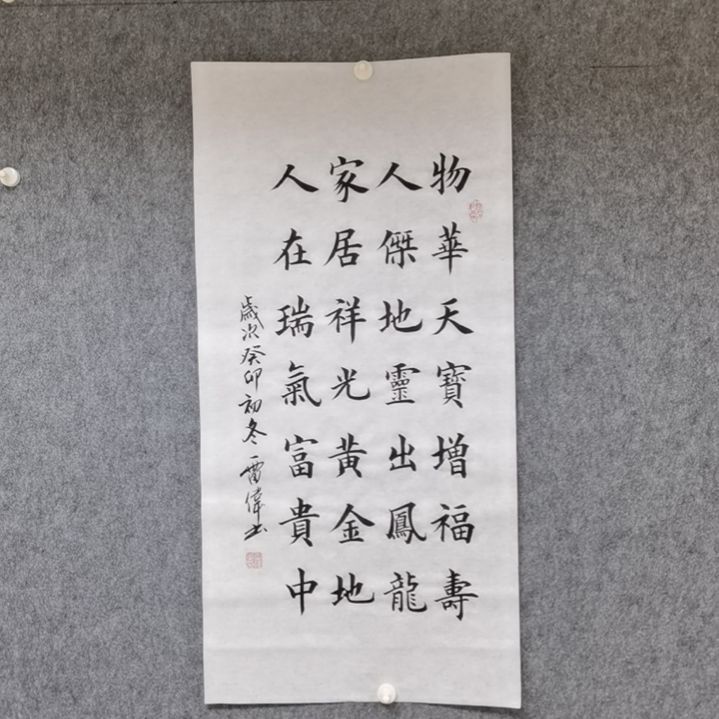 物華天寶增福壽
人傑地靈出鳳龍
家居祥光黃金地
人在瑞氣富貴中
歲次癸卯初冬雷偉書